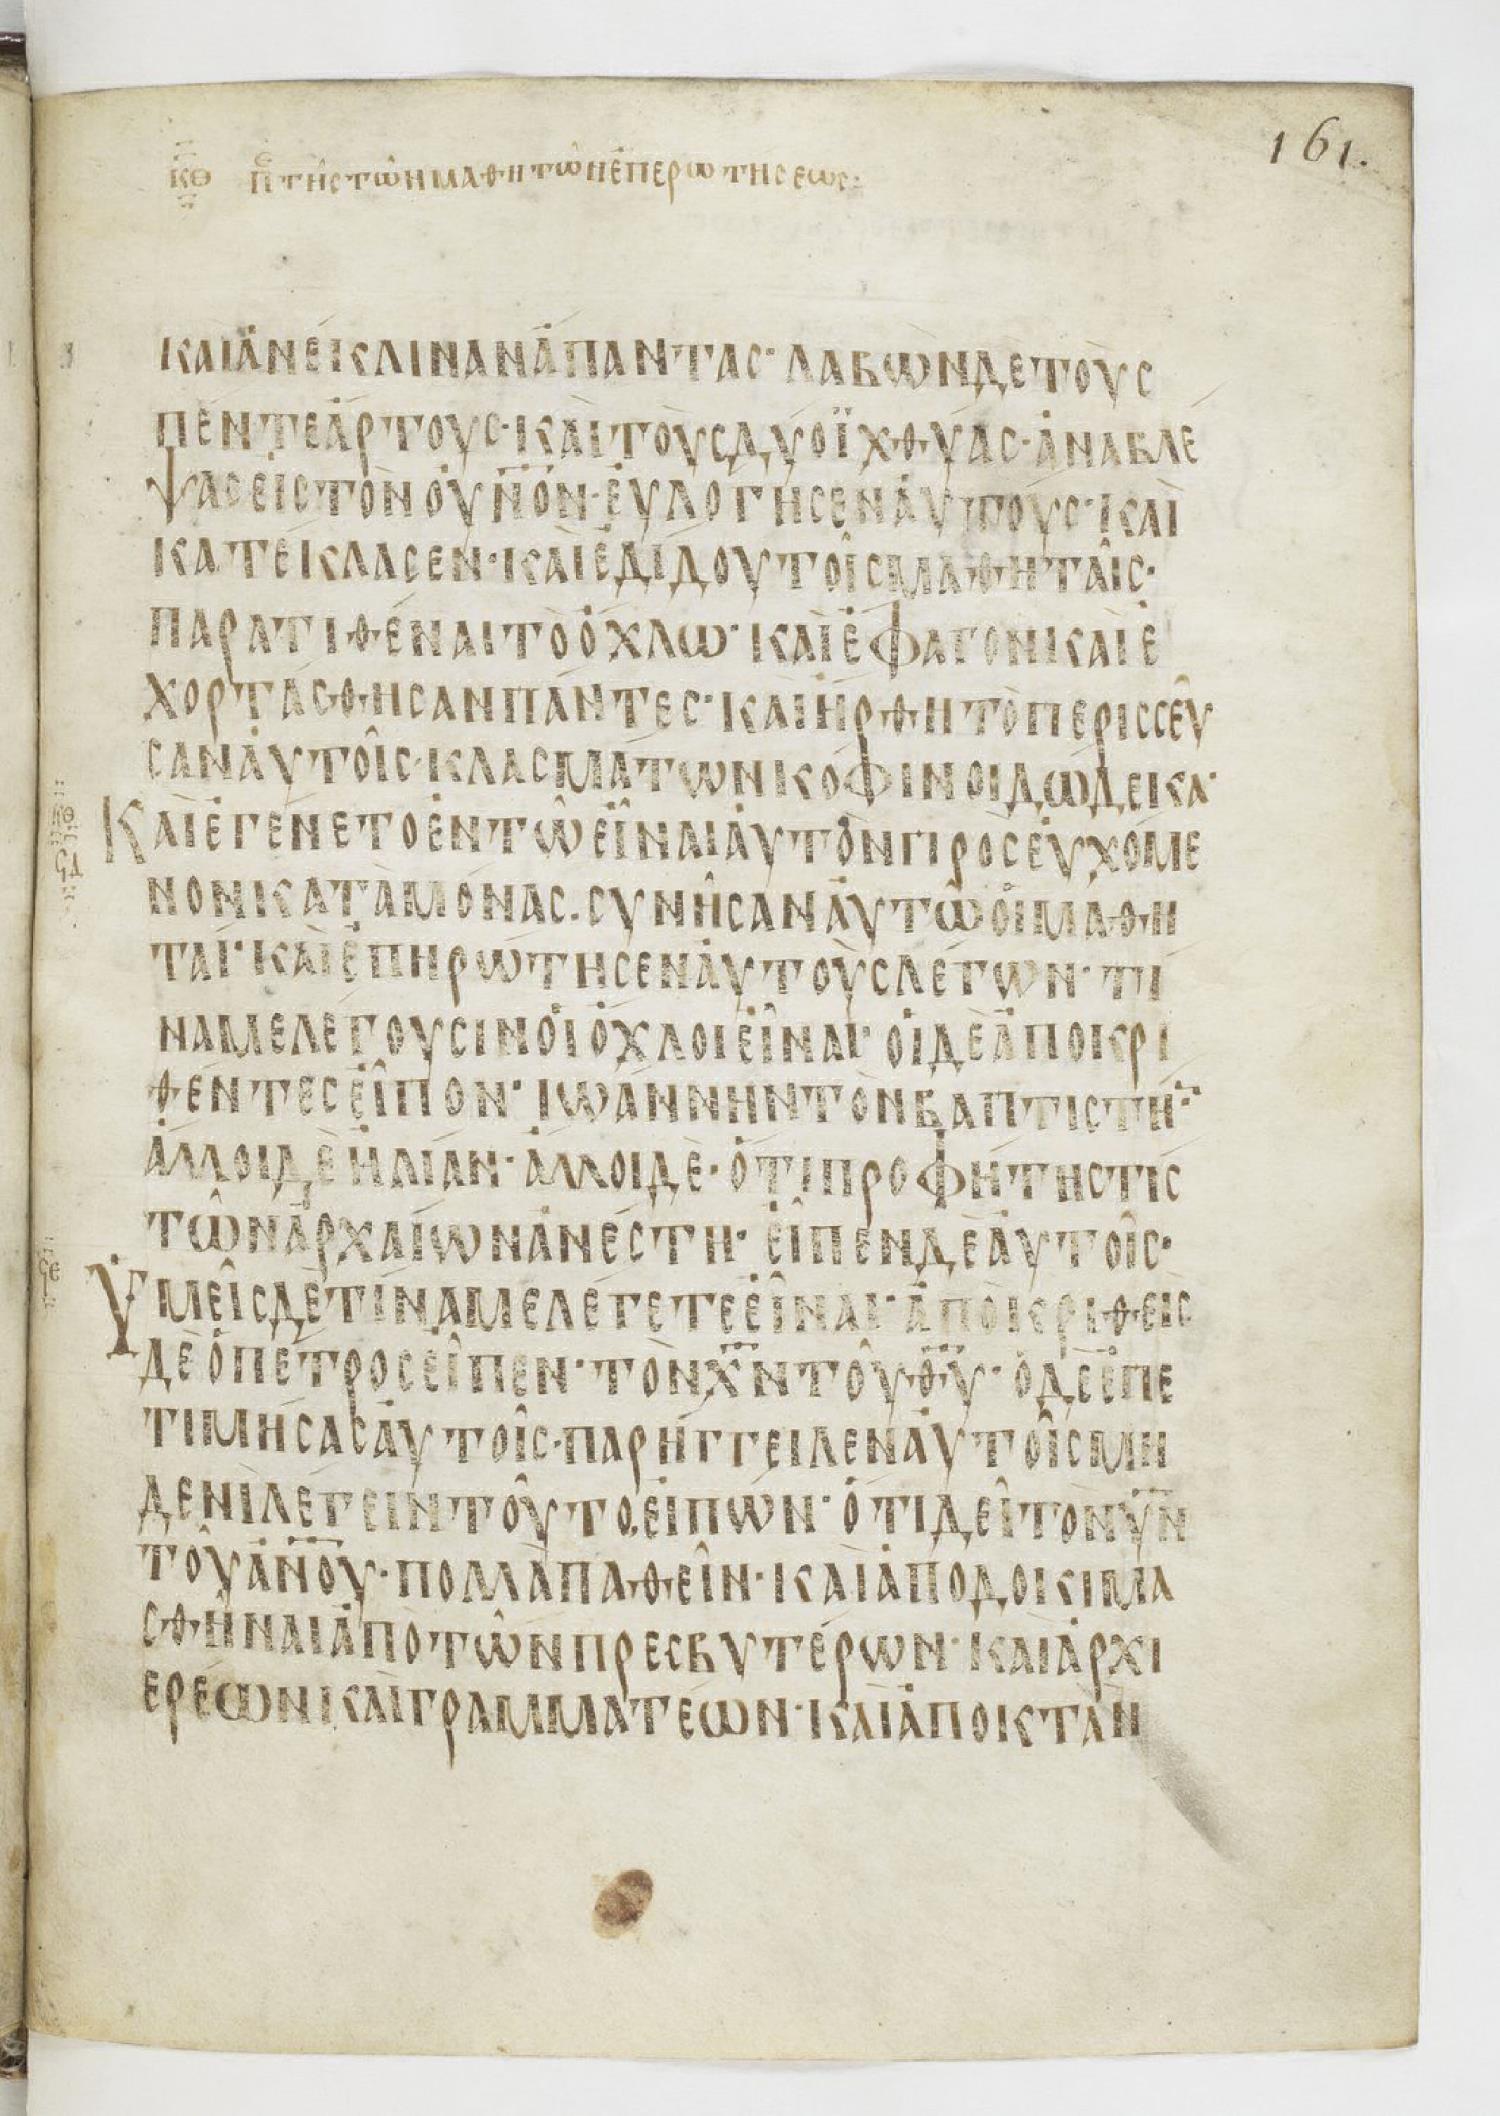 161.
ΚΘ ΠΕ ΤΗC ΤΩΝ ΜΑΘΗΤΩΝ ΕΠΕΡΩΤΗCΕΩC:
ΚΑΙΑΝΕΚΛΙΝΑΝΑΠΑΝΤΑC· ΛΑΒΩΝΔΕΤΟΥC
ΠΕΝΤΕΑΡΤΟΥC· ΚΑΙΤΟΥCΔΥΟΪΧΘΥΑC· ΑΝΑΒΛΕ
ΨΑCΕΙCΤΟΝΟΥΝΟΝ· ΕΥΛΟΓΗCΕΝΑΥΤΟΥC· ΚΑΙ
ΚΑΤΕΚΛΑCΕΝ· ΚΑΙΕΔΙΔΟΥΤΟΙCΜΑΘΗΤΑΙC·
ΠΑΡΑΤΙΘΕΝΑΙΤΟΟΧΛΩ· ΚΑΙΕΦΑΓΟΝΚΑΙΕ
ΧΟΡΤΑCΘΗCΑΝΠΑΝΤΕC· ΚΑΙΗΡΘΗΤΟΠΕΡΙCCΕΥ
CΑΝΑΥΤΟΙC· ΚΛΑCΜΑΤΩΝΚΟΦΙΝΟΙΔΩΔΕΚΑ·
ΚΘ
ϞΔ
ΚΑΙΕΓΕΝΕΤΟΕΝΤΩΕΙΝΑΙΑΥΤΟΝΠΡΟCΕΥΧΟΜΕ
ΝΟΝΚΑΤΑΜΟΝΑC. CΥΝΗCΑΝΑΥΤΩΟΙΜΑΘΗ
ΤΑΙ· ΚΑΙΕΠΗΡΩΤΗCΕΝΑΥΤΟΥCΛΕΓΩΝ· ΤΙ
ΝΑΜΕΛΕΓΟΥCΙΝΟΙΟΧΛΟΙΕΙΝΑΙ· ΟΙΔΕΑΠΟΚΡΙ
ΘΕΝΤΕCΕΙΠΟΝ· ΙΩΑΝΝΗΝΤΟΝΒΑΠΤΙCΤΗ̅·
ΑΛΛΟΙΔΕΗΛΙΑΝ· ΑΛΛΟΙΔΕ· ΟΤΙΠΡΟΦΗΤΗCΤΙC
ΤΩΝΑΡΧΑΙΩΝΑΝΕCΤΗ· ΕΙΠΕΝΔΕΑΥΤΟΙC·
ϞΕ
ΥΜΕΙCΔΕΤΙΝΑΜΕΛΕΓΕΤΕΕΙΝΑΙ· ΑΠΟΚΡΙΘΕΙC
ΔΕΟΠΕΤΡΟCΕΙΠΕΝ· ΤΟΝΧ̅Ν̅ΤΟΥΘ̅Υ̅· ΟΔΕΕΠΕ
ΤΙΜΗCΑCΑΥΤΟΙC· ΠΑΡΗΓΓΕΙΛΕΝΑΥΤΟΙCΜΗ
ΔΕΝΙΛΕΓΕΙΝΤΟΥΤΟ· ΕΙΠΩΝ· ΟΤΙΔΕΙΤΟΝΥ̅Ν̅
ΤΟΥΑ̅Ν̅Ο̅Υ̅· ΠΟΛΛΑΠΑΘΕΙΝ· ΚΑΙΑΠΟΔΟΚΙΜΑ
CΘΗΝΑΙΑΠΟΤΩΝΠΡΕCΒΥΤΕΡΩΝ· ΚΑΙΑΡΧΙ
ΕΡΕΩΝΚΑΙΓΡΑΜΜΑΤΕΩΝ· ΚΑΙΑΠΟΚΤΑΝ